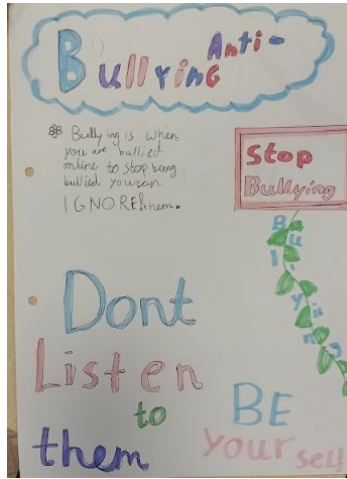 Anti-
Bullying
Bullying is when
you are bullied
online to stop being
bullied you can
IGNORE them.
Stop
Bullying
Bullying
Dont
Listen
to
them
BE
yourself